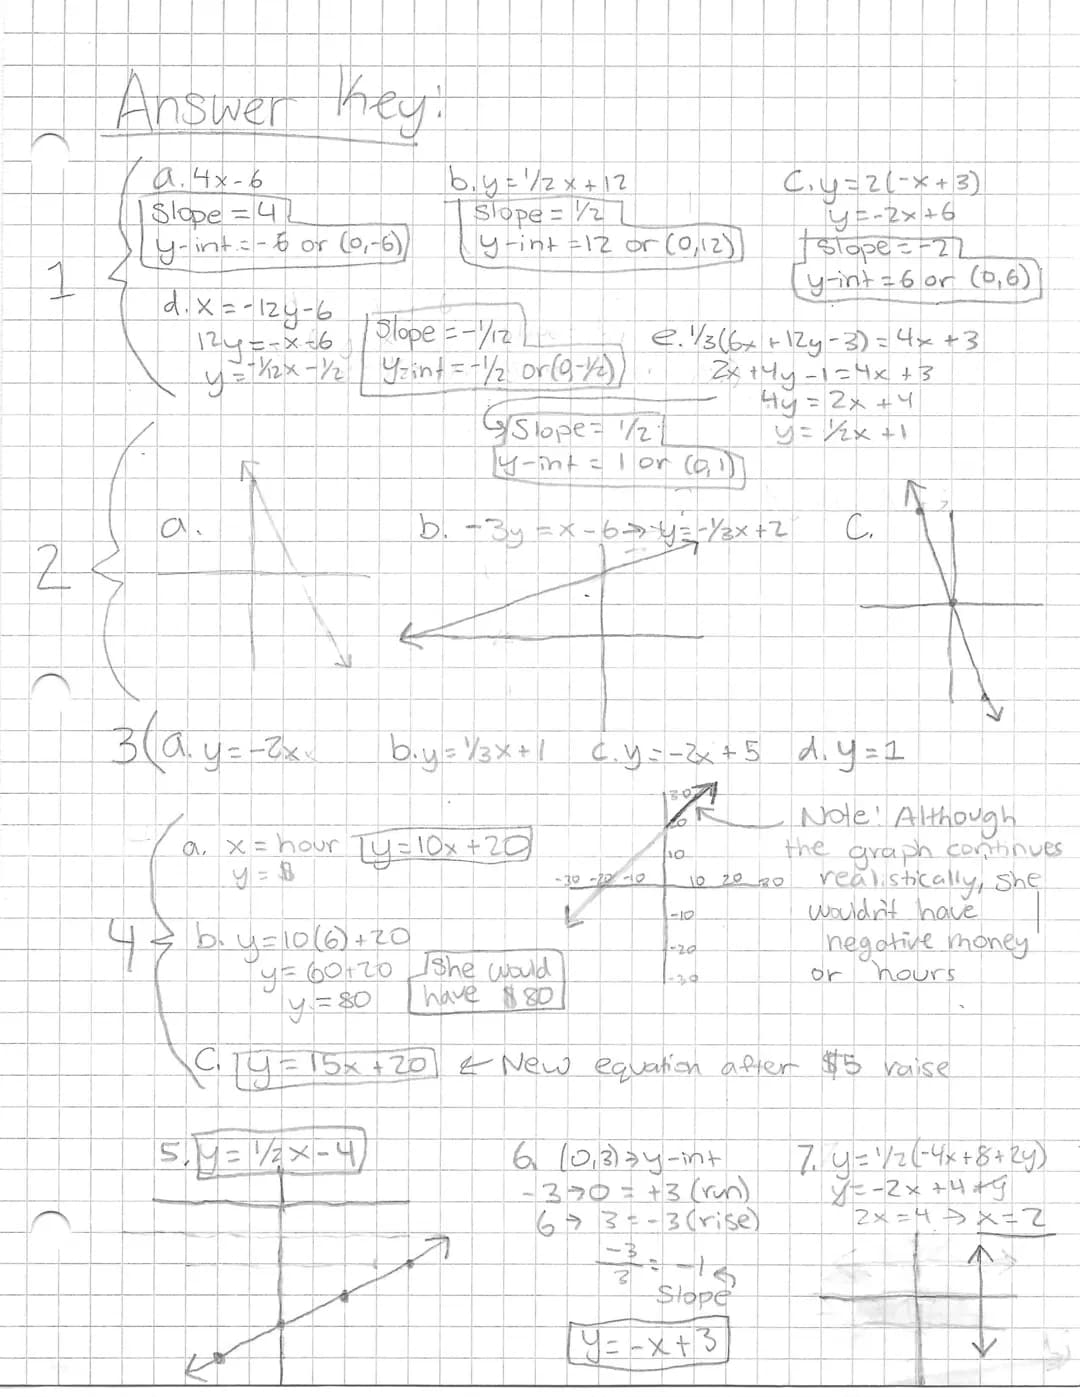 Answer Key:
1
a. 4x-6
Slope = 4
y-int. = -6 or (0,-6)
b. y = 1/2 x + 12
Slope = 1/2
y-int = 12 or (0,12)
C. y = 2(-x+3)
y = -2x+6
Slope = -2
y-int = 6 or (0,6)
d. x = -12y-6
12y = -x-6
y = -1/12x - 1/2
Slope = -1/12
y-int = -1/2 or (0,-1/2)
e. 1/3(6x + 12y - 3) = 4x + 3
2x + 4y - 1 = 4x + 3
4y = 2x + 4
y = 1/2x + 1
Slope = 1/2
y-int = 1 or (0,1)
2
a.
b. -3y = x - 6 → y = -1/3x + 2
C.
3(a. y = -2x
b. y = 1/3x + 1
c. y = -2x + 5
d. y = 1
4
a. x = hour
y = $
y = 10x + 20
30
20
10
-30 -20 -10
10 20 30
-10
-20
-30
Note: Although
the graph continues
realistically, she
wouldn't have
negative money
or hours
b. y = 10(6) + 20
y = 60 + 20
y = 80
She would
have $80
C. y = 15x + 20 ← New equation after $5 raise
5. y = 1/2x - 4
6. (0,3) → y-int
-3 → 0 = +3 (run)
6 → 3 = -3 (rise)
-3/3 = -1
Slope
y = -x + 3
7. y = 1/2(-4x + 8 + 2y)
y = -2x + 4 + y
2x = 4 → x = 2